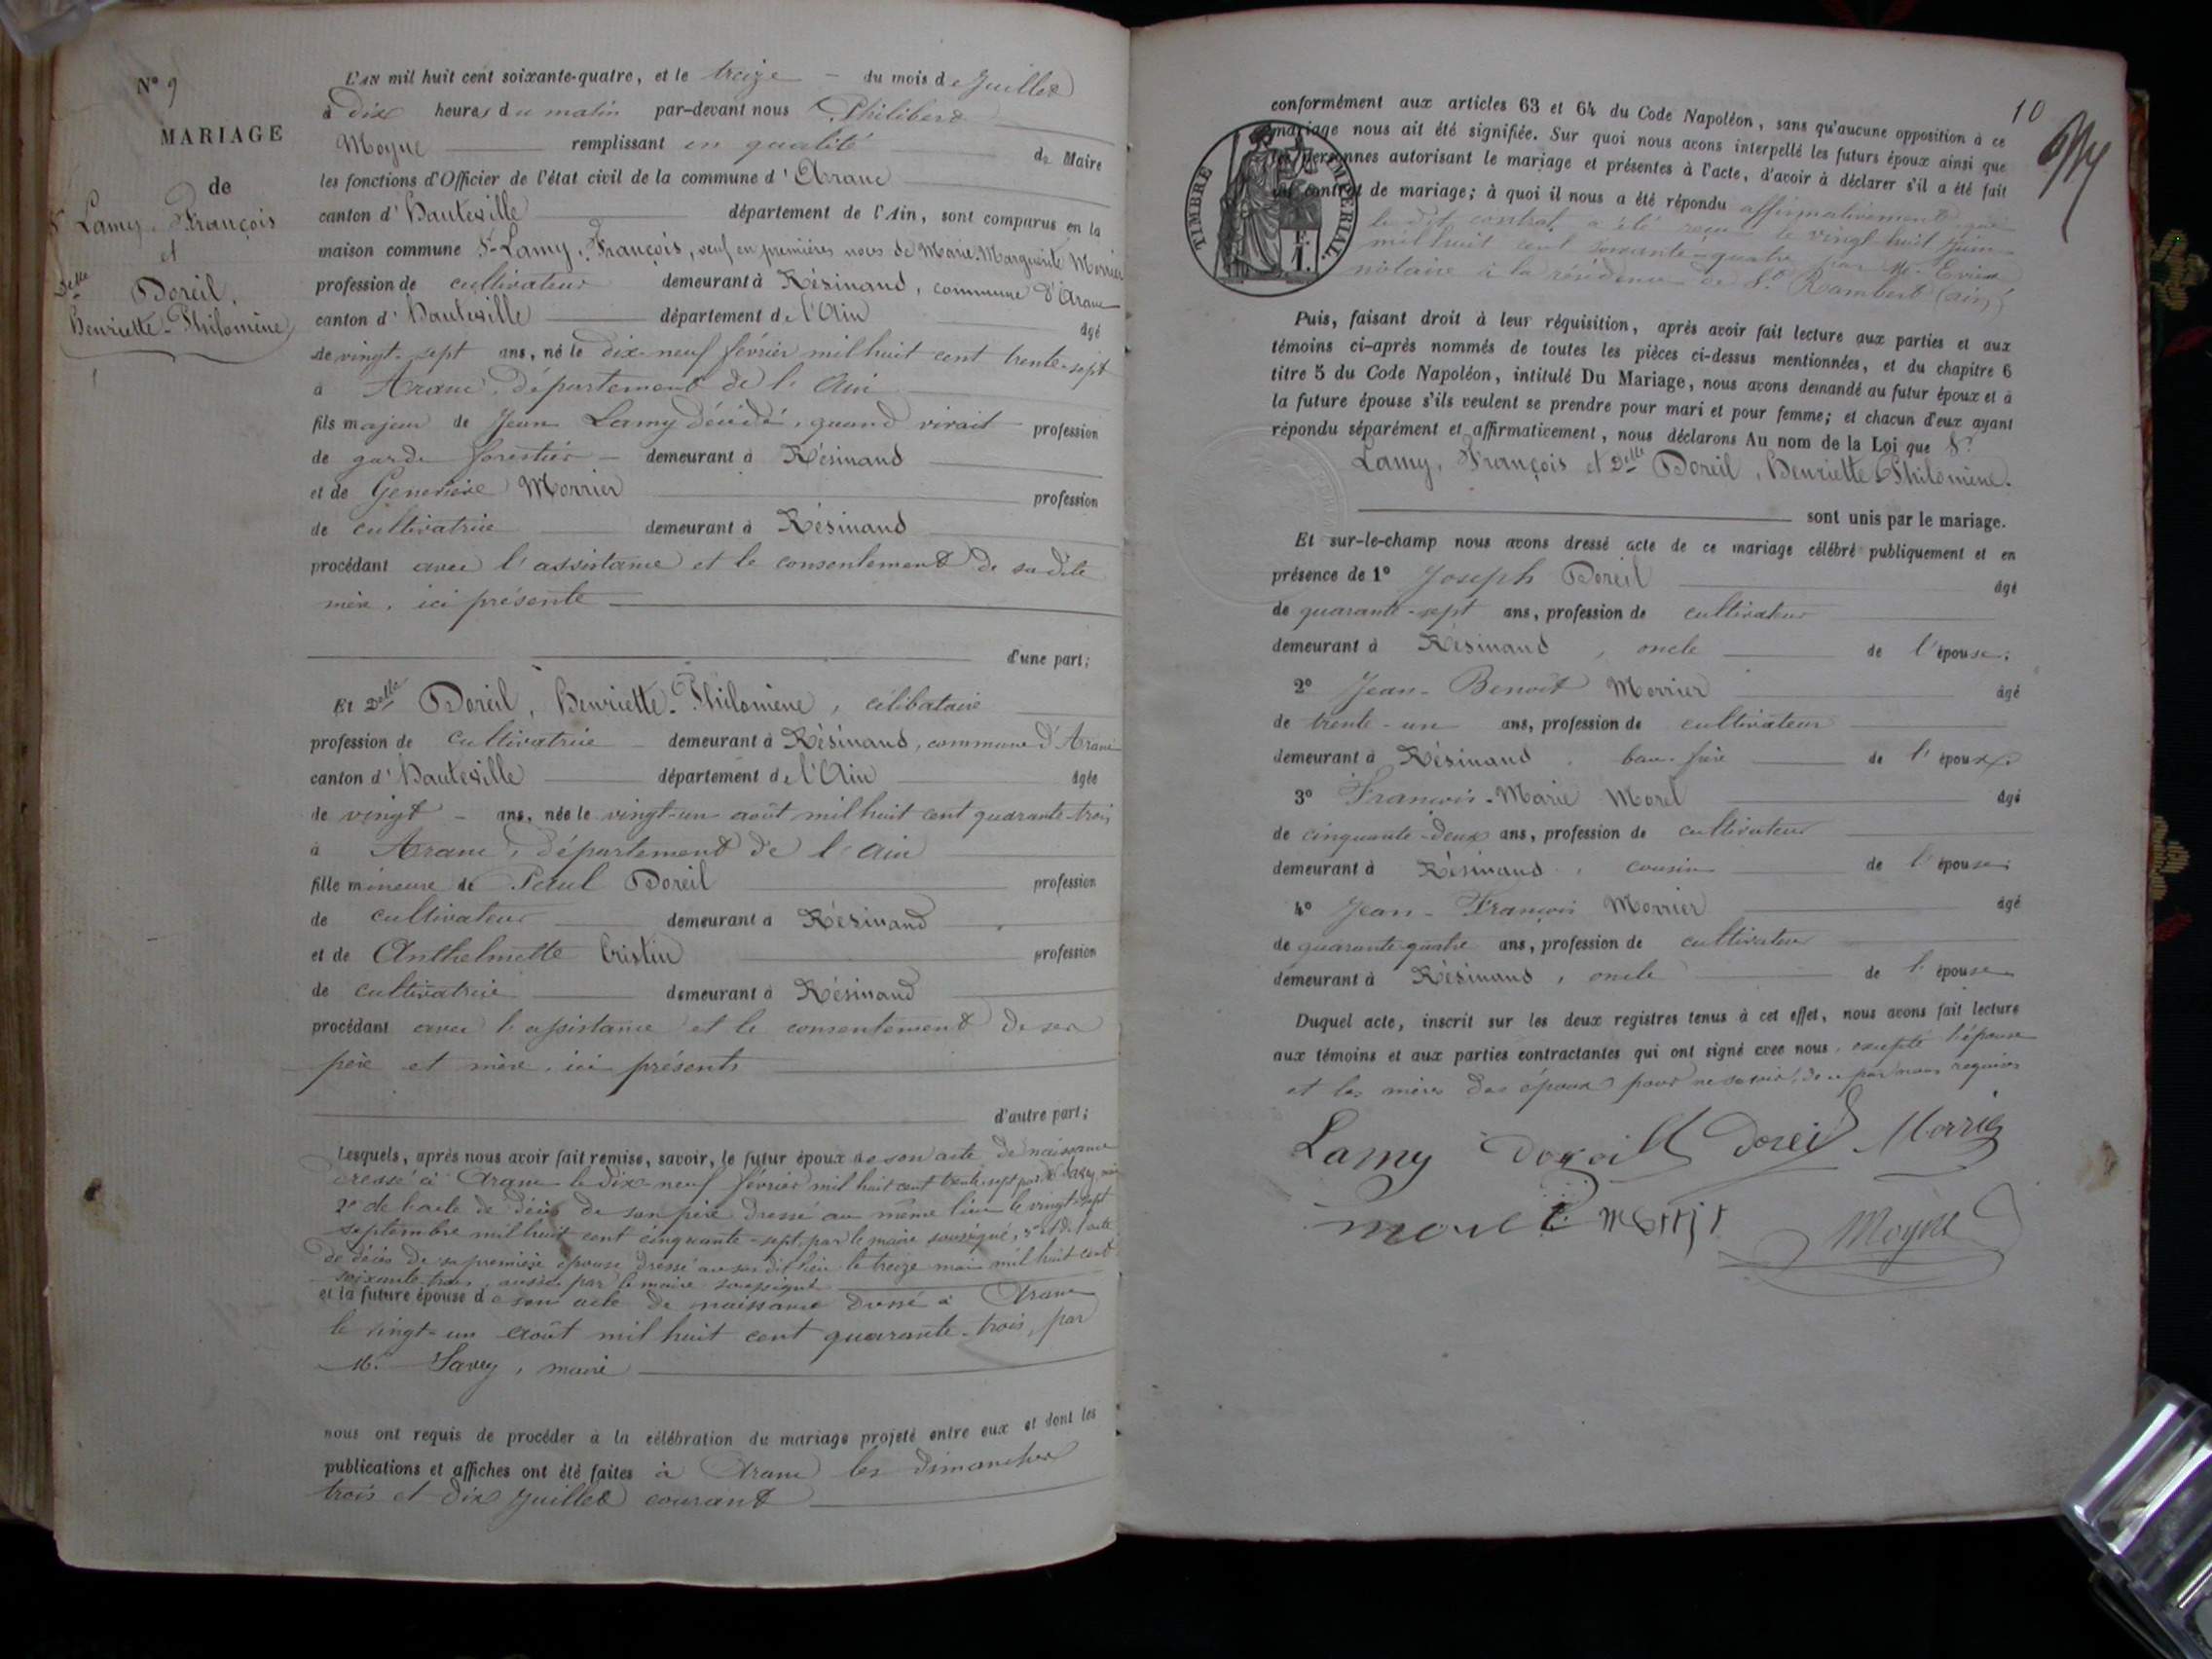 N° 9
MARIAGE
de
Sr Lamy, François
et
Delle Doreil,
Henriette-Philomène
L'an mil huit cent soixante-quatre, et le treize - du mois de Juillet
à dix heures du matin par-devant nous Philibert
Moyne remplissant en qualité de Maire
les fonctions d'Officier de l'état civil de la commune d'Aranc
canton d'Hauteville département de l'Ain, sont comparus en la
maison commune Sr Lamy, François, veuf en premières noces de Marie-Marguerite Morrier
profession de cultivateur demeurant à Résinand, commune d'Aranc
canton d'Hauteville département de l'Ain âgé
de vingt-sept ans, né le dix-neuf février mil huit cent trente-sept
à Aranc, département de l'Ain
fils majeur de Jean Lamy décédé, quand vivait profession
de garde forestier - demeurant à Résinand
et de Geneviève Morrier profession
de cultivatrice demeurant à Résinand
procédant avec l'assistance et le consentement de sa dite
mère, ici présente
d'une part;
Et Delle Doreil, Henriette-Philomène, célibataire
profession de cultivatrice demeurant à Résinand, commune d'Aranc
canton d'Hauteville département de l'Ain âgée
de vingt - ans, née le vingt-un août mil huit cent quarante-trois
à Aranc, département de l'Ain
fille mineure de Paul Doreil profession
de cultivateur demeurant à Résinand
et de Anthelmette Cristin profession
de cultivatrice demeurant à Résinand
procédant avec l'assistance et le consentement de ses
père et mère, ici présents
d'autre part;
Lesquels, après nous avoir fait remise, savoir, le futur époux de son acte de naissance
dressé à Aranc le dix-neuf février mil huit cent trente-sept par M. Savey, maire
2° de l'acte de décès de son père dressé au même lieu le vingt-sept
septembre mil huit cent cinquante-sept par le maire soussigné, 3° et de l'acte
de décès de sa première épouse dressé au sus dit lieu le treize mai mil huit cent
soixante-trois, aussi par le maire soussigné
et la future épouse de son acte de naissance dressé à Aranc
le vingt-un août mil huit cent quarante-trois, par
M. Savey, maire
nous ont requis de procéder à la célébration du mariage projeté entre eux et dont les
publications et affiches ont été faites à Aranc les dimanches
trois et dix Juillet courant
10
TIMBRE IMPÉRIAL
conformément aux articles 63 et 64 du Code Napoléon, sans qu'aucune opposition à ce
mariage nous ait été signifiée. Sur quoi nous avons interpellé les futurs époux ainsi que
les personnes autorisant le mariage et présentes à l'acte, d'avoir à déclarer s'il a été fait
un contrat de mariage; à quoi il nous a été répondu affirmativement que
le dit contrat a été reçu le vingt-huit Juin
mil huit cent soixante-quatre par Me
notaire à la résidence de St Rambert (ain)
Puis, faisant droit à leur réquisition, après avoir fait lecture aux parties et aux
témoins ci-après nommés de toutes les pièces ci-dessus mentionnées, et du chapitre 6
titre 5 du Code Napoléon, intitulé Du Mariage, nous avons demandé au futur époux et à
la future épouse s'ils veulent se prendre pour mari et pour femme; et chacun d'eux ayant
répondu séparément et affirmativement, nous déclarons Au nom de la Loi que Sr
Lamy, François et Delle Doreil, Henriette-Philomène.
sont unis par le mariage.
Et sur-le-champ nous avons dressé acte de ce mariage célébré publiquement et en
présence de 1° Joseph Doreil âgé
de quarante-sept ans, profession de cultivateur
demeurant à Résinand, oncle de l'épouse;
2° Jean-Benoît Morrier âgé
de trente-un ans, profession de cultivateur
demeurant à Résinand, beau-frère de l'époux;
3° François-Marie Morel âgé
de cinquante-deux ans, profession de cultivateur
demeurant à Résinand, cousin de l'épouse;
4° Jean-François Morrier âgé
de quarante-quatre ans, profession de cultivateur
demeurant à Résinand, oncle de l'épouse
Duquel acte, inscrit sur les deux registres tenus à cet effet, nous avons fait lecture
aux témoins et aux parties contractantes qui ont signé avec nous, excepté l'épouse
et les mères des époux pour ne savoir, de ce par nous requises
Lamy Doreil Doreil Morrier
Morel Moyne